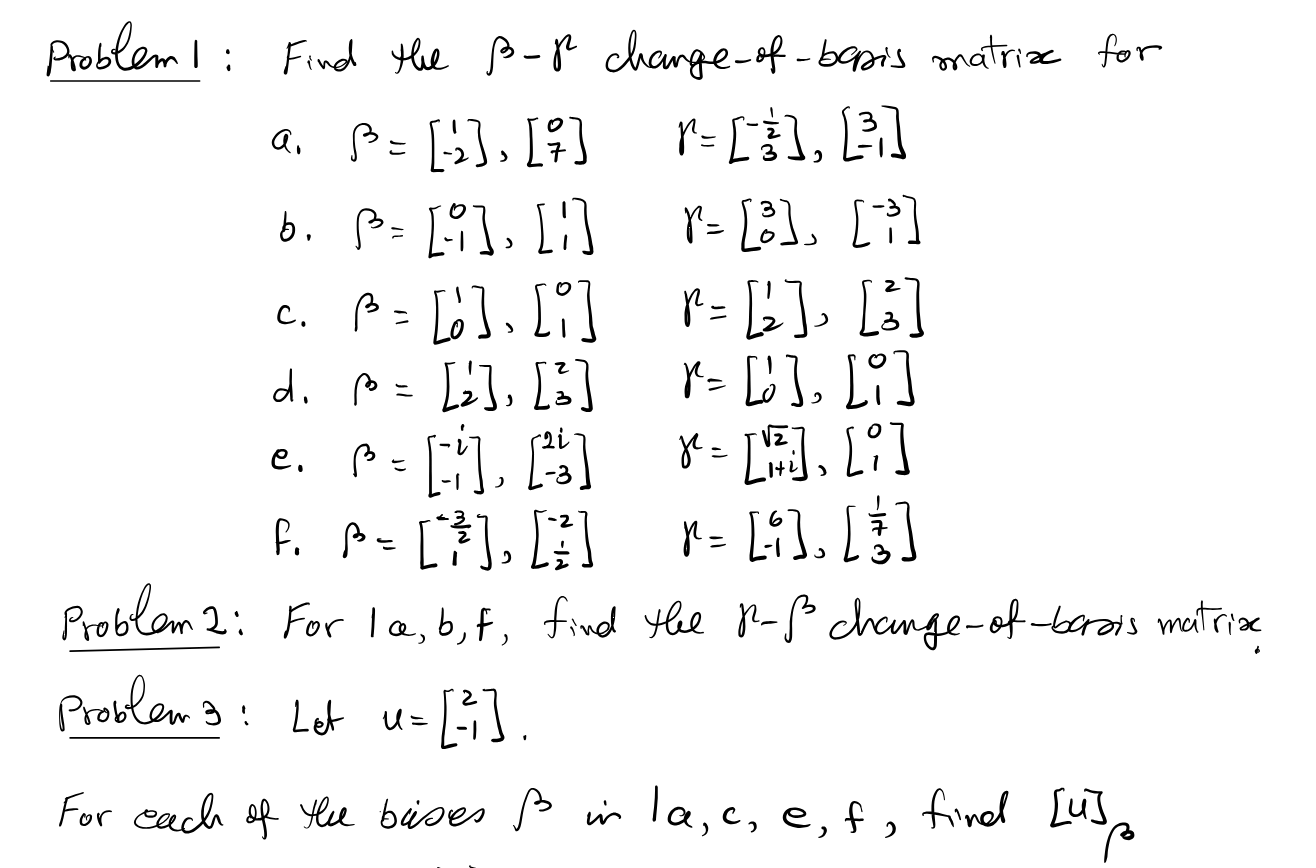 Problem 1: Find the β-γ change-of-basis matrix for
a. β = [1 -2], [0 7] γ = [-1/2 3], [3 -1]
b. β = [0 -1], [1 1] γ = [3 0], [-3 1]
c. β = [1 0], [0 1] γ = [1 2], [2 3]
d. β = [1 2], [2 3] γ = [1 0], [0 1]
e. β = [-i -1], [2i -3] γ = [√2 1+i], [0 1]
f. β = [-3/2 1], [-2 1/2] γ = [6 -1], [1/7 3]
Problem 2: For 1a, b, f, find the γ-β change-of-basis matrix.
Problem 3: Let u = [2 -1].
For each of the bases β in 1a, c, e, f, find [u]β